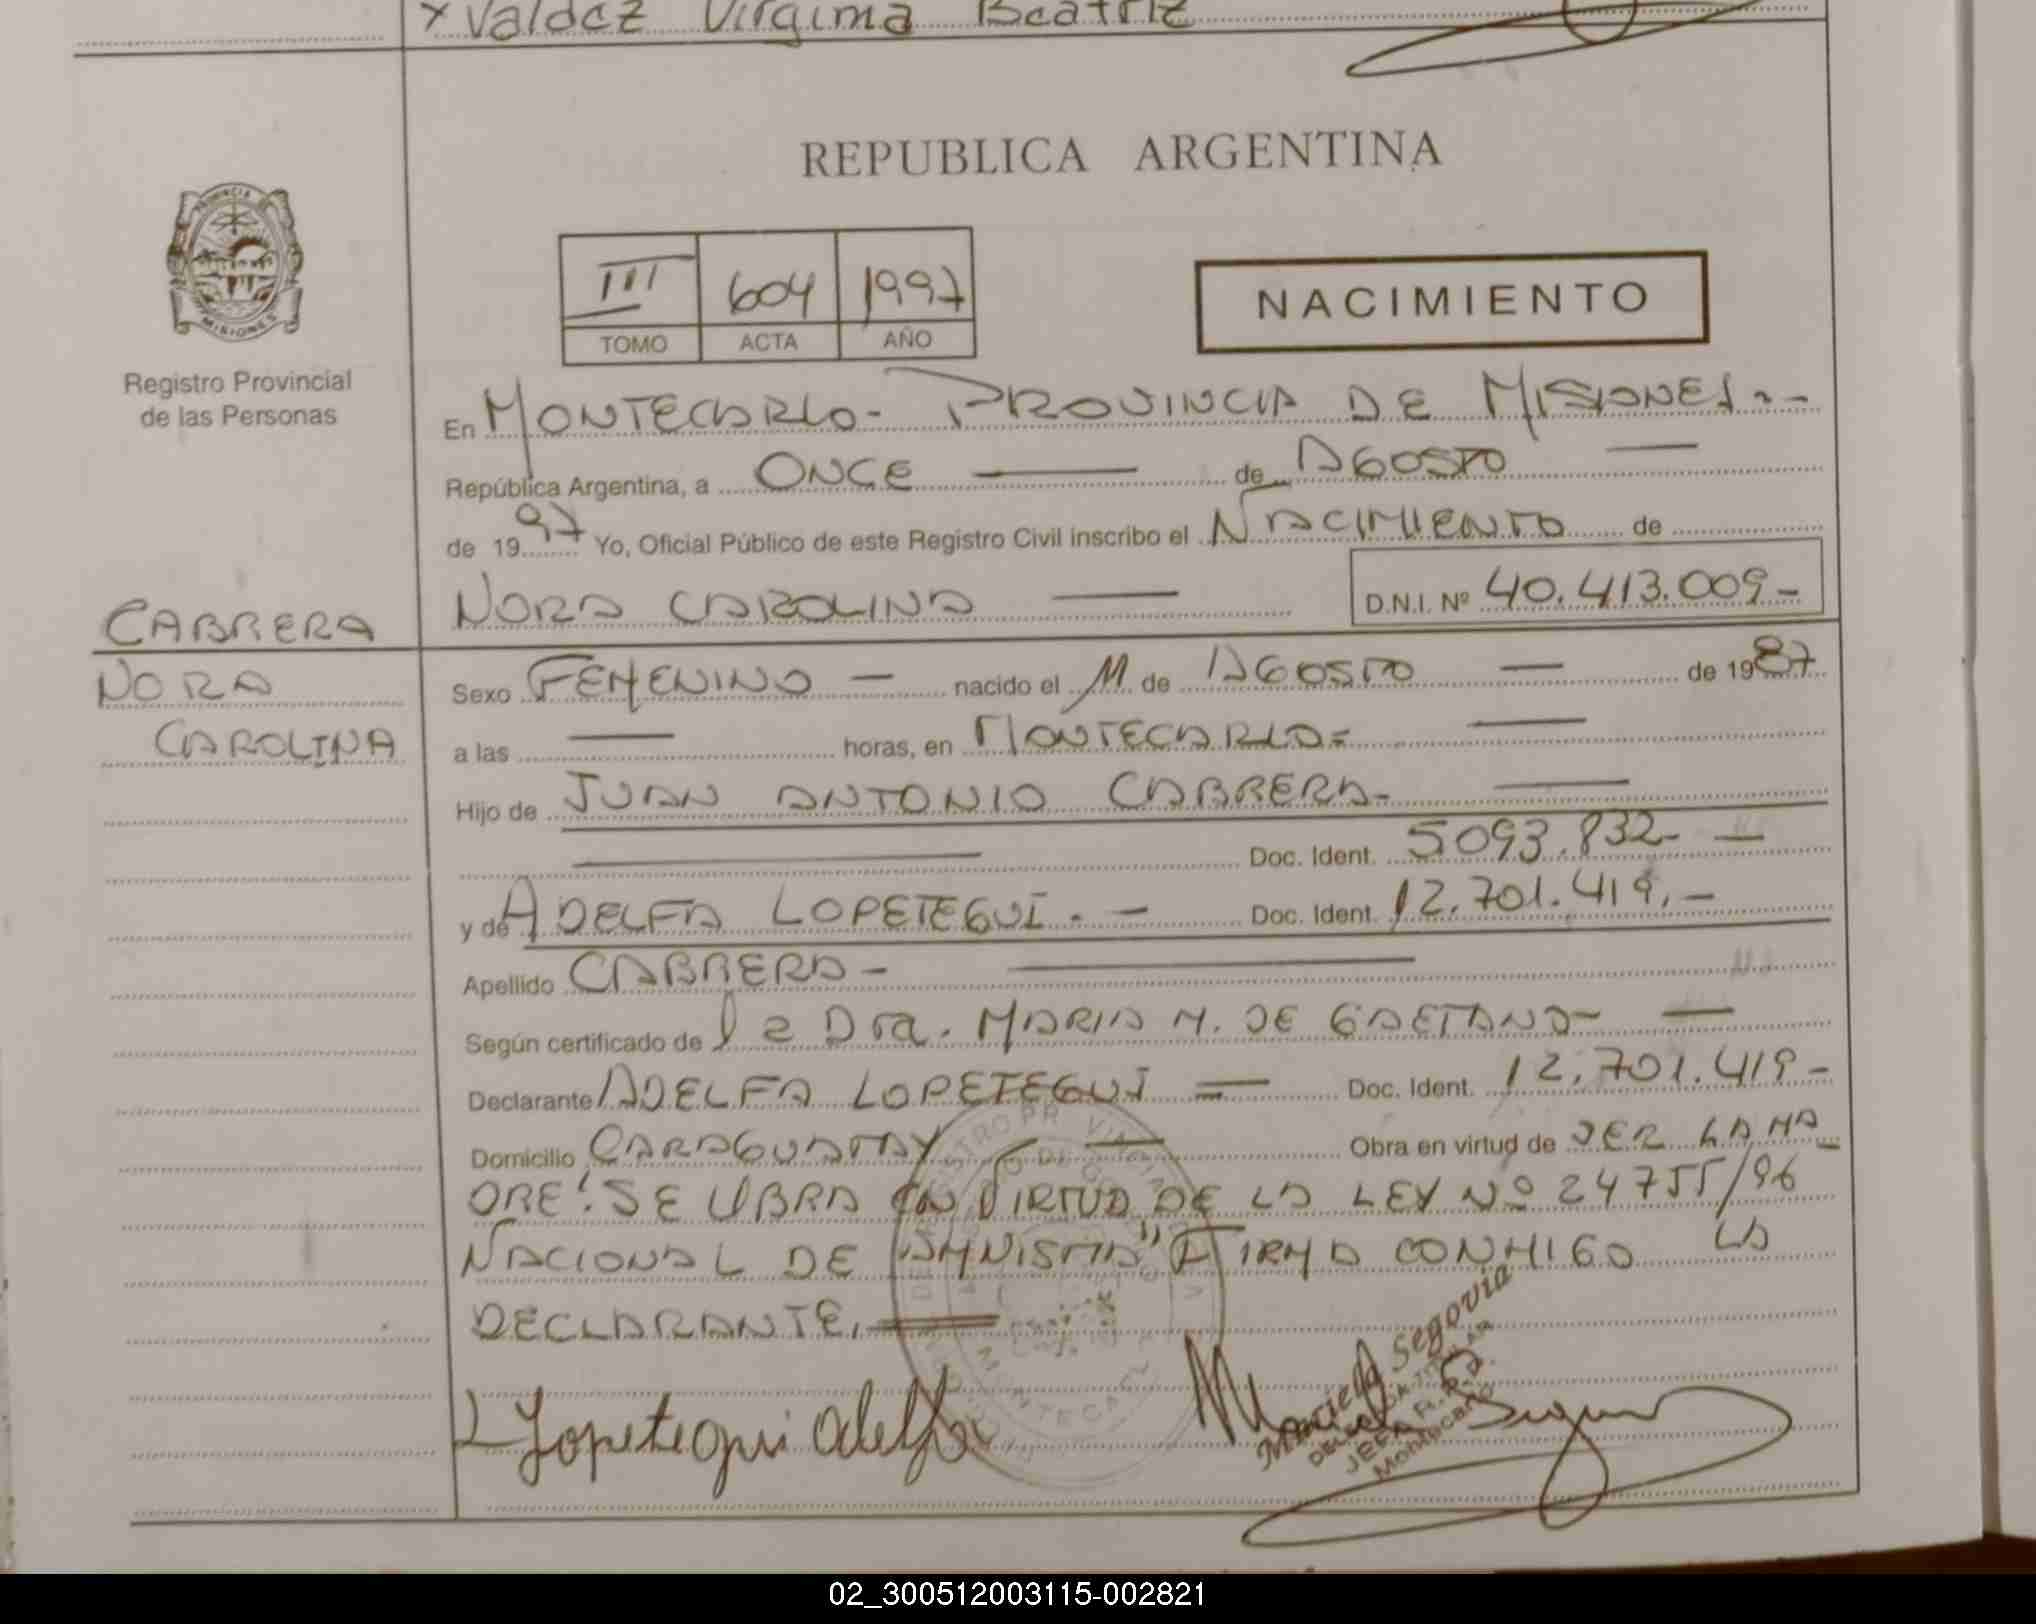 x Valdez Virginia Beatriz
REPUBLICA ARGENTINA
PROVINCIA DE
MISIONES
Registro Provincial
de las Personas
III 604 1997
TOMO ACTA AÑO
NACIMIENTO
En MONTECARLO - PROVINCIA DE MISIONES. --
República Argentina, a ONCE — de AGOSTO —
de 1997 Yo, Oficial Público de este Registro Civil inscribo el NACIMIENTO de
NORA CAROLINA — D.N.I. Nº 40.413.009-
CABRERA
NORA
CAROLINA
Sexo FEMENINO — nacido el 11 de AGOSTO — de 1987
a las — horas, en MONTECARLO= —
Hijo de JUAN ANTONIO CABRERA- —
— Doc. Ident. 5093.832- —
y de ADELFA LOPETEGUI. - Doc. Ident. 12.701.419.-
Apellido CABRERA- —
Según certificado de la Dra. MARIA M. DE GAETANO- —
Declarante ADELFA LOPETEGUI = Doc. Ident. 12.701.419-
Domicilio CARAGUATAY — Obra en virtud de SER LA MA_
DRE! SE OBRA EN VIRTUD DE LA LEY Nº 24755/96
NACIONAL DE "AMNISTIA" FIRMA CONMIGO LA
DECLARANTE. =
Lopetegui Adelfa
Mariela Segovia
JEFA R.P.
Montecarlo
02_300512003115-002821